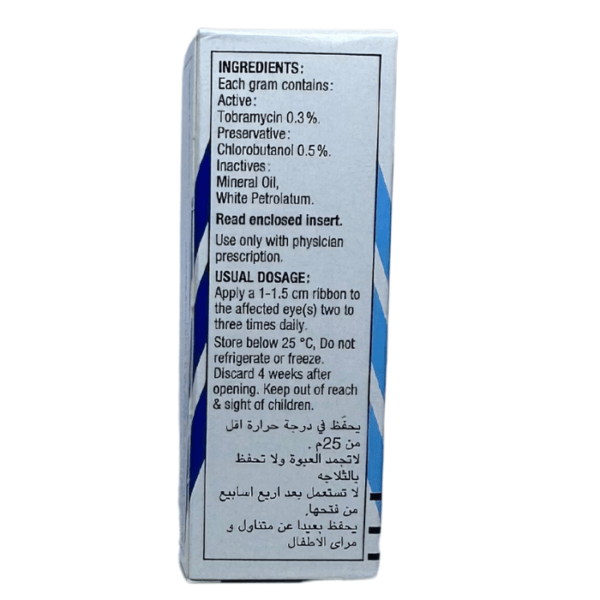 INGREDIENTS:
Each gram contains:
Active:
Tobramycin 0.3%.
Preservative:
Chlorobutanol 0.5%.
Inactives:
Mineral Oil,
White Petrolatum.
Read enclosed insert.
Use only with physician
prescription.
USUAL DOSAGE:
Apply a 1-1.5 cm ribbon to
the affected eye(s) two to
three times daily.
Store below 25 °C, Do not
refrigerate or freeze.
Discard 4 weeks after
opening. Keep out of reach
& sight of children.
يحفَظ في درجة حرارة اقل
من 25م .
لاتجمد العبوة ولا تحفظ
بالثلاجه
لا تستعمل بعد اربع اسابيع
من فتحها.
يحفظ بعيدا عن متناول و
مراى الاطفال